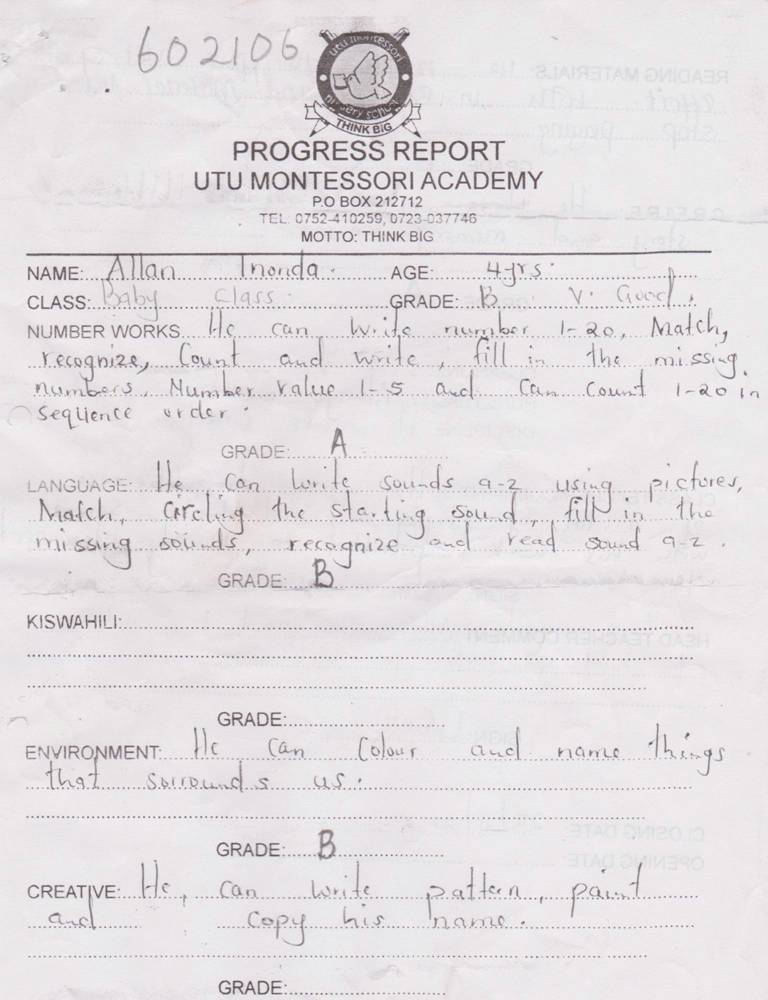 602106
utu montessori
nursery school
THINK BIG
PROGRESS REPORT
UTU MONTESSORI ACADEMY
P.O BOX 212712
TEL: 0752-410259, 0723-037746
MOTTO: THINK BIG
NAME: Allan AGE: 4yrs.
CLASS: Baby Class. GRADE: B V. Good.
NUMBER WORKS He can write number 1-20, Match,
recognize, Count and write, fill in the missing
numbers. Number value 1-5 and can count 1-20 in
sequence order.
GRADE: A
LANGUAGE: He can write sounds a-z using pictures,
Match, Circling the starting sound, fill in the
missing sounds, recognize and read sound a-z.
GRADE: B
KISWAHILI:
GRADE:
ENVIRONMENT: He can Colour and name things
that sorrounds us.
GRADE: B
CREATIVE: He, can write pattern, paint
and copy his name.
GRADE: